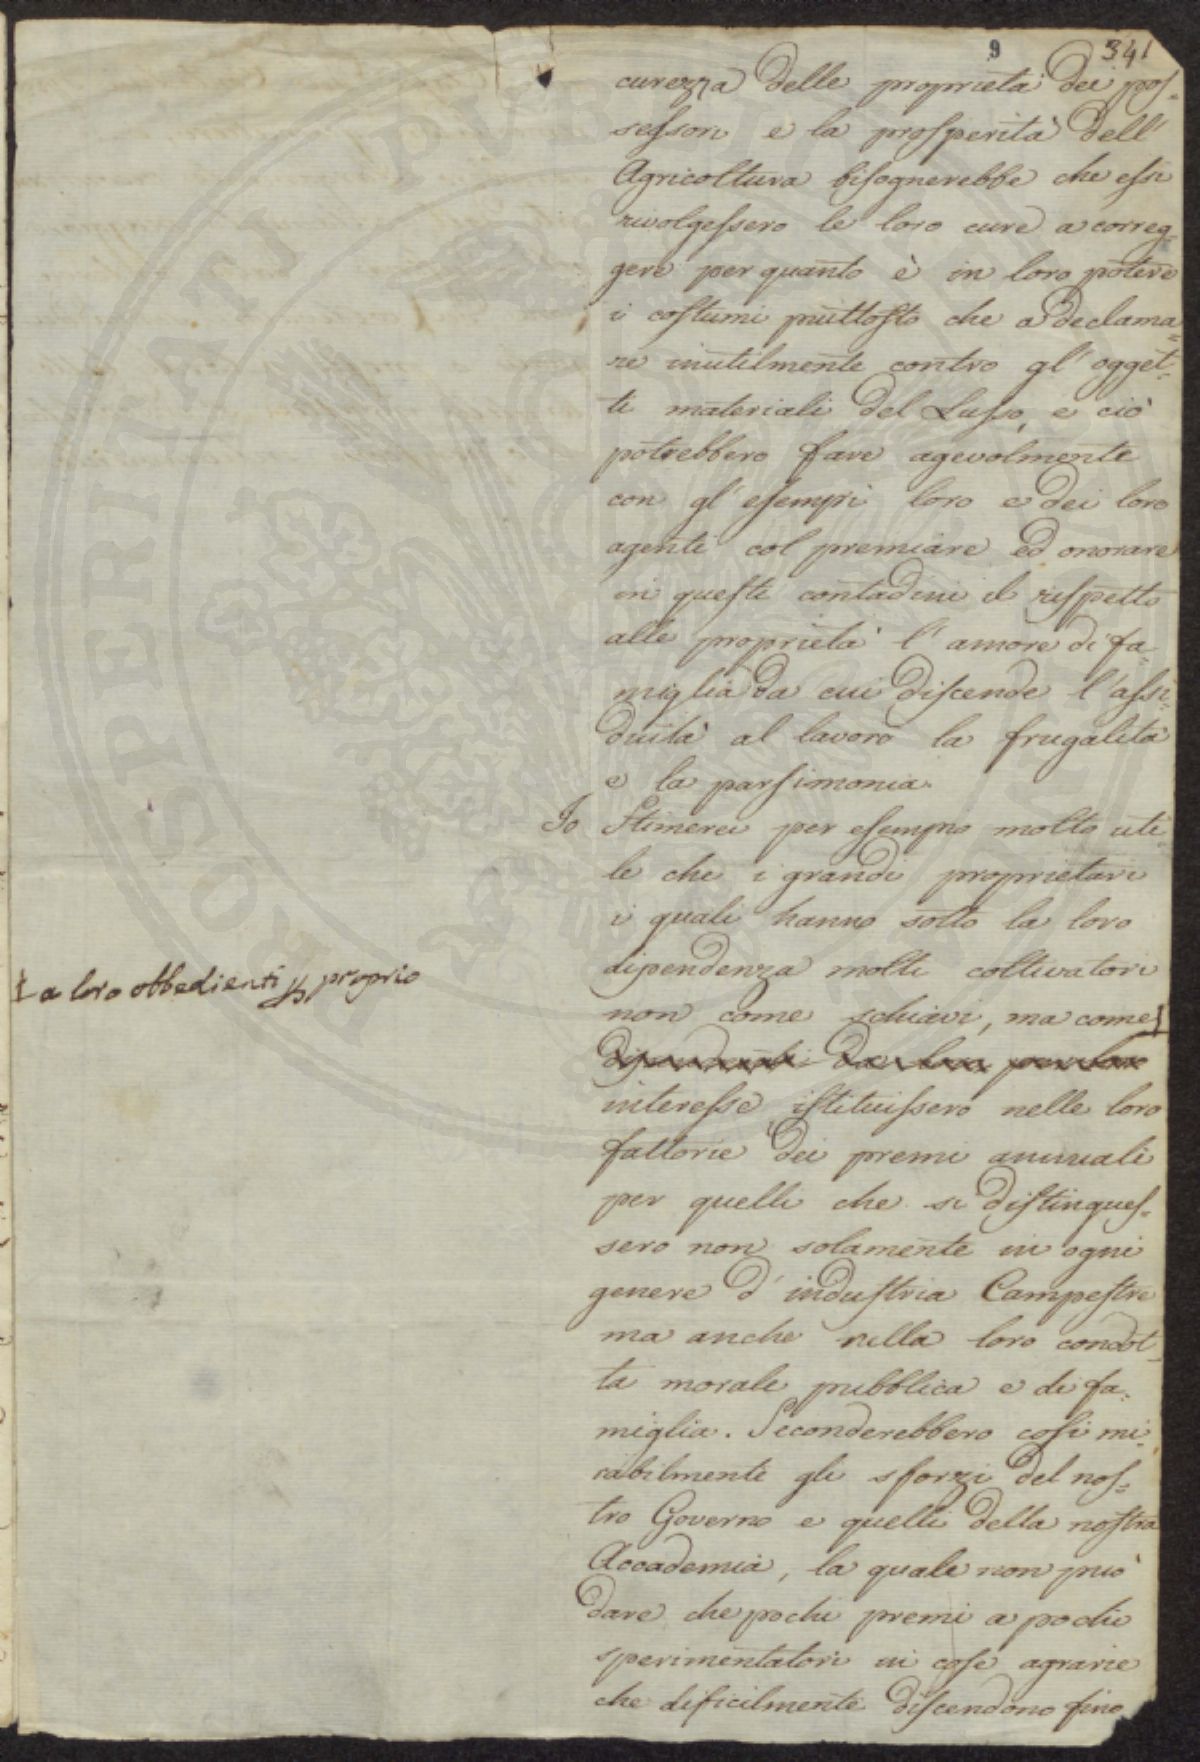 9
341
curezza delle proprietà dei pos-
sessori e la prosperità dell'
Agricoltura bisognerebbe che essi
rivolgessero le loro cure a correg-
gere per quanto è in loro potere
i costumi piuttosto che a declama-
re inutilmente contro gl'ogget-
ti materiali del Lusso, e ciò
potrebbero fare agevolmente
con gl'esempi loro e dei loro
agenti col premiare ed onorare
in questi contadini il rispetto
alle proprietà l'amore di fa-
miglia da cui discende l'assi-
duità al lavoro la frugalità
e la parsimonia.
Io Stimerei per esempio molto uti-
le che i grandi proprietari
i quali hanno sotto la loro
dipendenza molti coltivatori
non come schiavi, ma come
a loro obbedienti p proprio
interesse istituissero nelle loro
fattorie dei premi annuali
per quelli che si distingues-
sero non solamente in ogni
genere d'industria Campestre
ma anche nella loro condot-
ta morale pubblica e di fa-
miglia. Seconderebbero così mi-
rabilmente gli sforzi del nos-
tro Governo e quelli della nostra
Accademia, la quale non può
dare che pochi premi a pochi
sperimentatori in cose agrarie
che dificilmente discendono fino
PROSPERITATI PUBLICAE